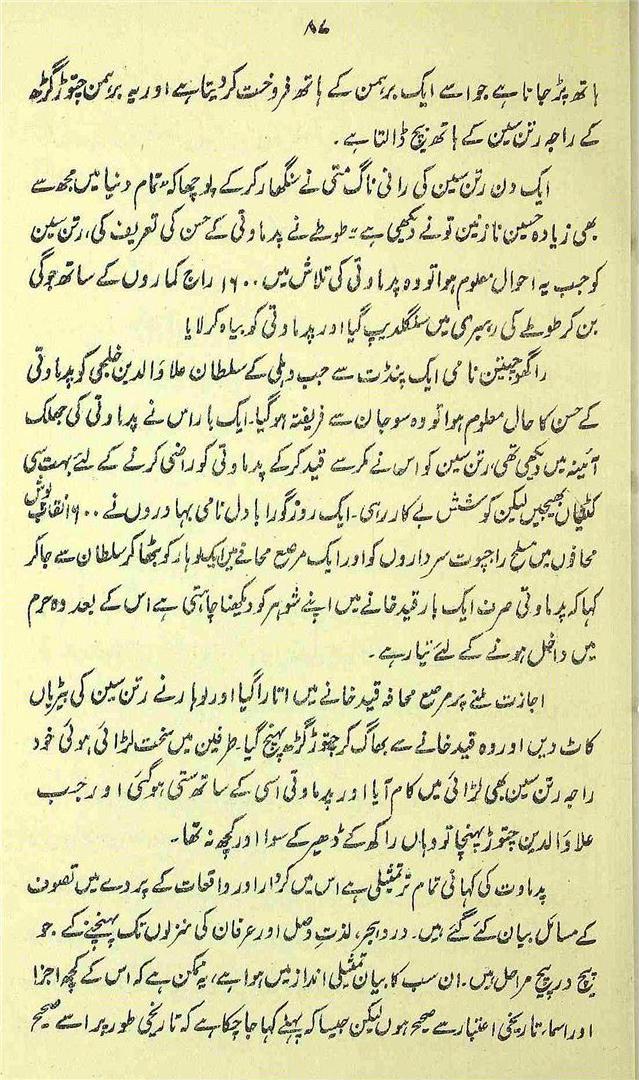 ۸۶
ہاتھ پڑ جاتا ہے جو اسے ایک برہمن کے ہاتھ فروخت کر دیتا ہے اور یہ برہمن چتوڑ گڑھ
کے راجہ رتن سین کے ہاتھ بیچ ڈالتا ہے۔
ایک دن رتن سین کی رانی ناگ متی نے سنگھار کر کے پوچھا کہ "تمام دنیا میں مجھ سے
بھی زیادہ حسین نازنین تو نے دیکھی ہے" طوطے نے پدماوتی کے حسن کی تعریف کی، رتن سین
کو جب یہ احوال معلوم ہوا تو وہ پدماوتی کی تلاش میں ۱۶۰۰ راج کماروں کے ساتھ جوگی
بن کر طوطے کی رہبری میں سنگلدیپ گیا اور پدماوتی کو بیاہ کر لایا
راگھو چیتن نامی ایک پنڈت سے جب دہلی کے سلطان علاؤالدین خلجی کو پدماوتی
کے حسن کا حال معلوم ہوا تو وہ سو جان سے فریفتہ ہو گیا۔ ایک بار اس نے پدماوتی کی جھلک
آئینہ میں دیکھی تھی، رتن سین کو اس نے مکر سے قید کر کے پدماوتی کو راضی کرنے کے لئے بہت سی
کٹنیاں بھیجیں لیکن کوشش بے کار رہی۔ ایک روز گورا بادل نامی بہادروں نے ۱۶۰۰ نقاب پوش
محافوں میں مسلح راجپوت سرداروں کو اور ایک مرصع محافے میں ایک لوہار کو بٹھا کر سلطان سے جا کر
کہا کہ پدماوتی صرف ایک بار قید خانے میں اپنے شوہر کو دیکھنا چاہتی ہے اس کے بعد وہ حرم
میں داخل ہونے کے لئے تیار ہے۔
اجازت ملنے پر مرصع محافہ قید خانے میں اتارا گیا اور لوہار نے رتن سین کی بیڑیاں
کاٹ دیں اور وہ قید خانے سے بھاگ کر چتوڑ گڑھ پہنچ گیا۔ طرفین میں سخت لڑائی ہوئی خود
راجہ رتن سین بھی لڑائی میں کام آیا اور پدماوتی اسی کے ساتھ ستی ہو گئی اور جب
علاؤالدین چتوڑ پہنچا تو وہاں راکھ کے ڈھیر کے سوا اور کچھ نہ تھا۔
پدماوت کی کہانی تمام تر تمثیلی ہے اس میں کردار اور واقعات کے پردے میں تصوف
کے مسائل بیان کئے گئے ہیں۔ درد ہجر، لذتِ وصل اور عرفان کی منزلوں تک پہنچنے کے جو
پیچ در پیچ مراحل ہیں۔ ان سب کا بیان تمثیلی انداز میں ہوا ہے، یہ ممکن ہے کہ اس کے کچھ اجزا
اور اسماء تاریخی اعتبار سے صحیح ہوں لیکن جیسا کہ پہلے کہا جا چکا ہے کہ تاریخی طور پر اسے صحیح